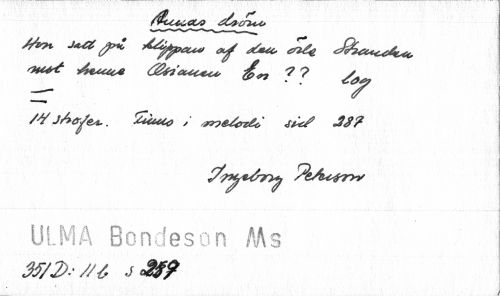 Annas dröm
Hon satt på klippan af den öde Stranden
mot henne Oceanen En ?? log
=
14 strofer. Finns i melodi sid 287
Ingeborg Peterson
ULMA Bondeson Ms
351 D: 11 b s 287